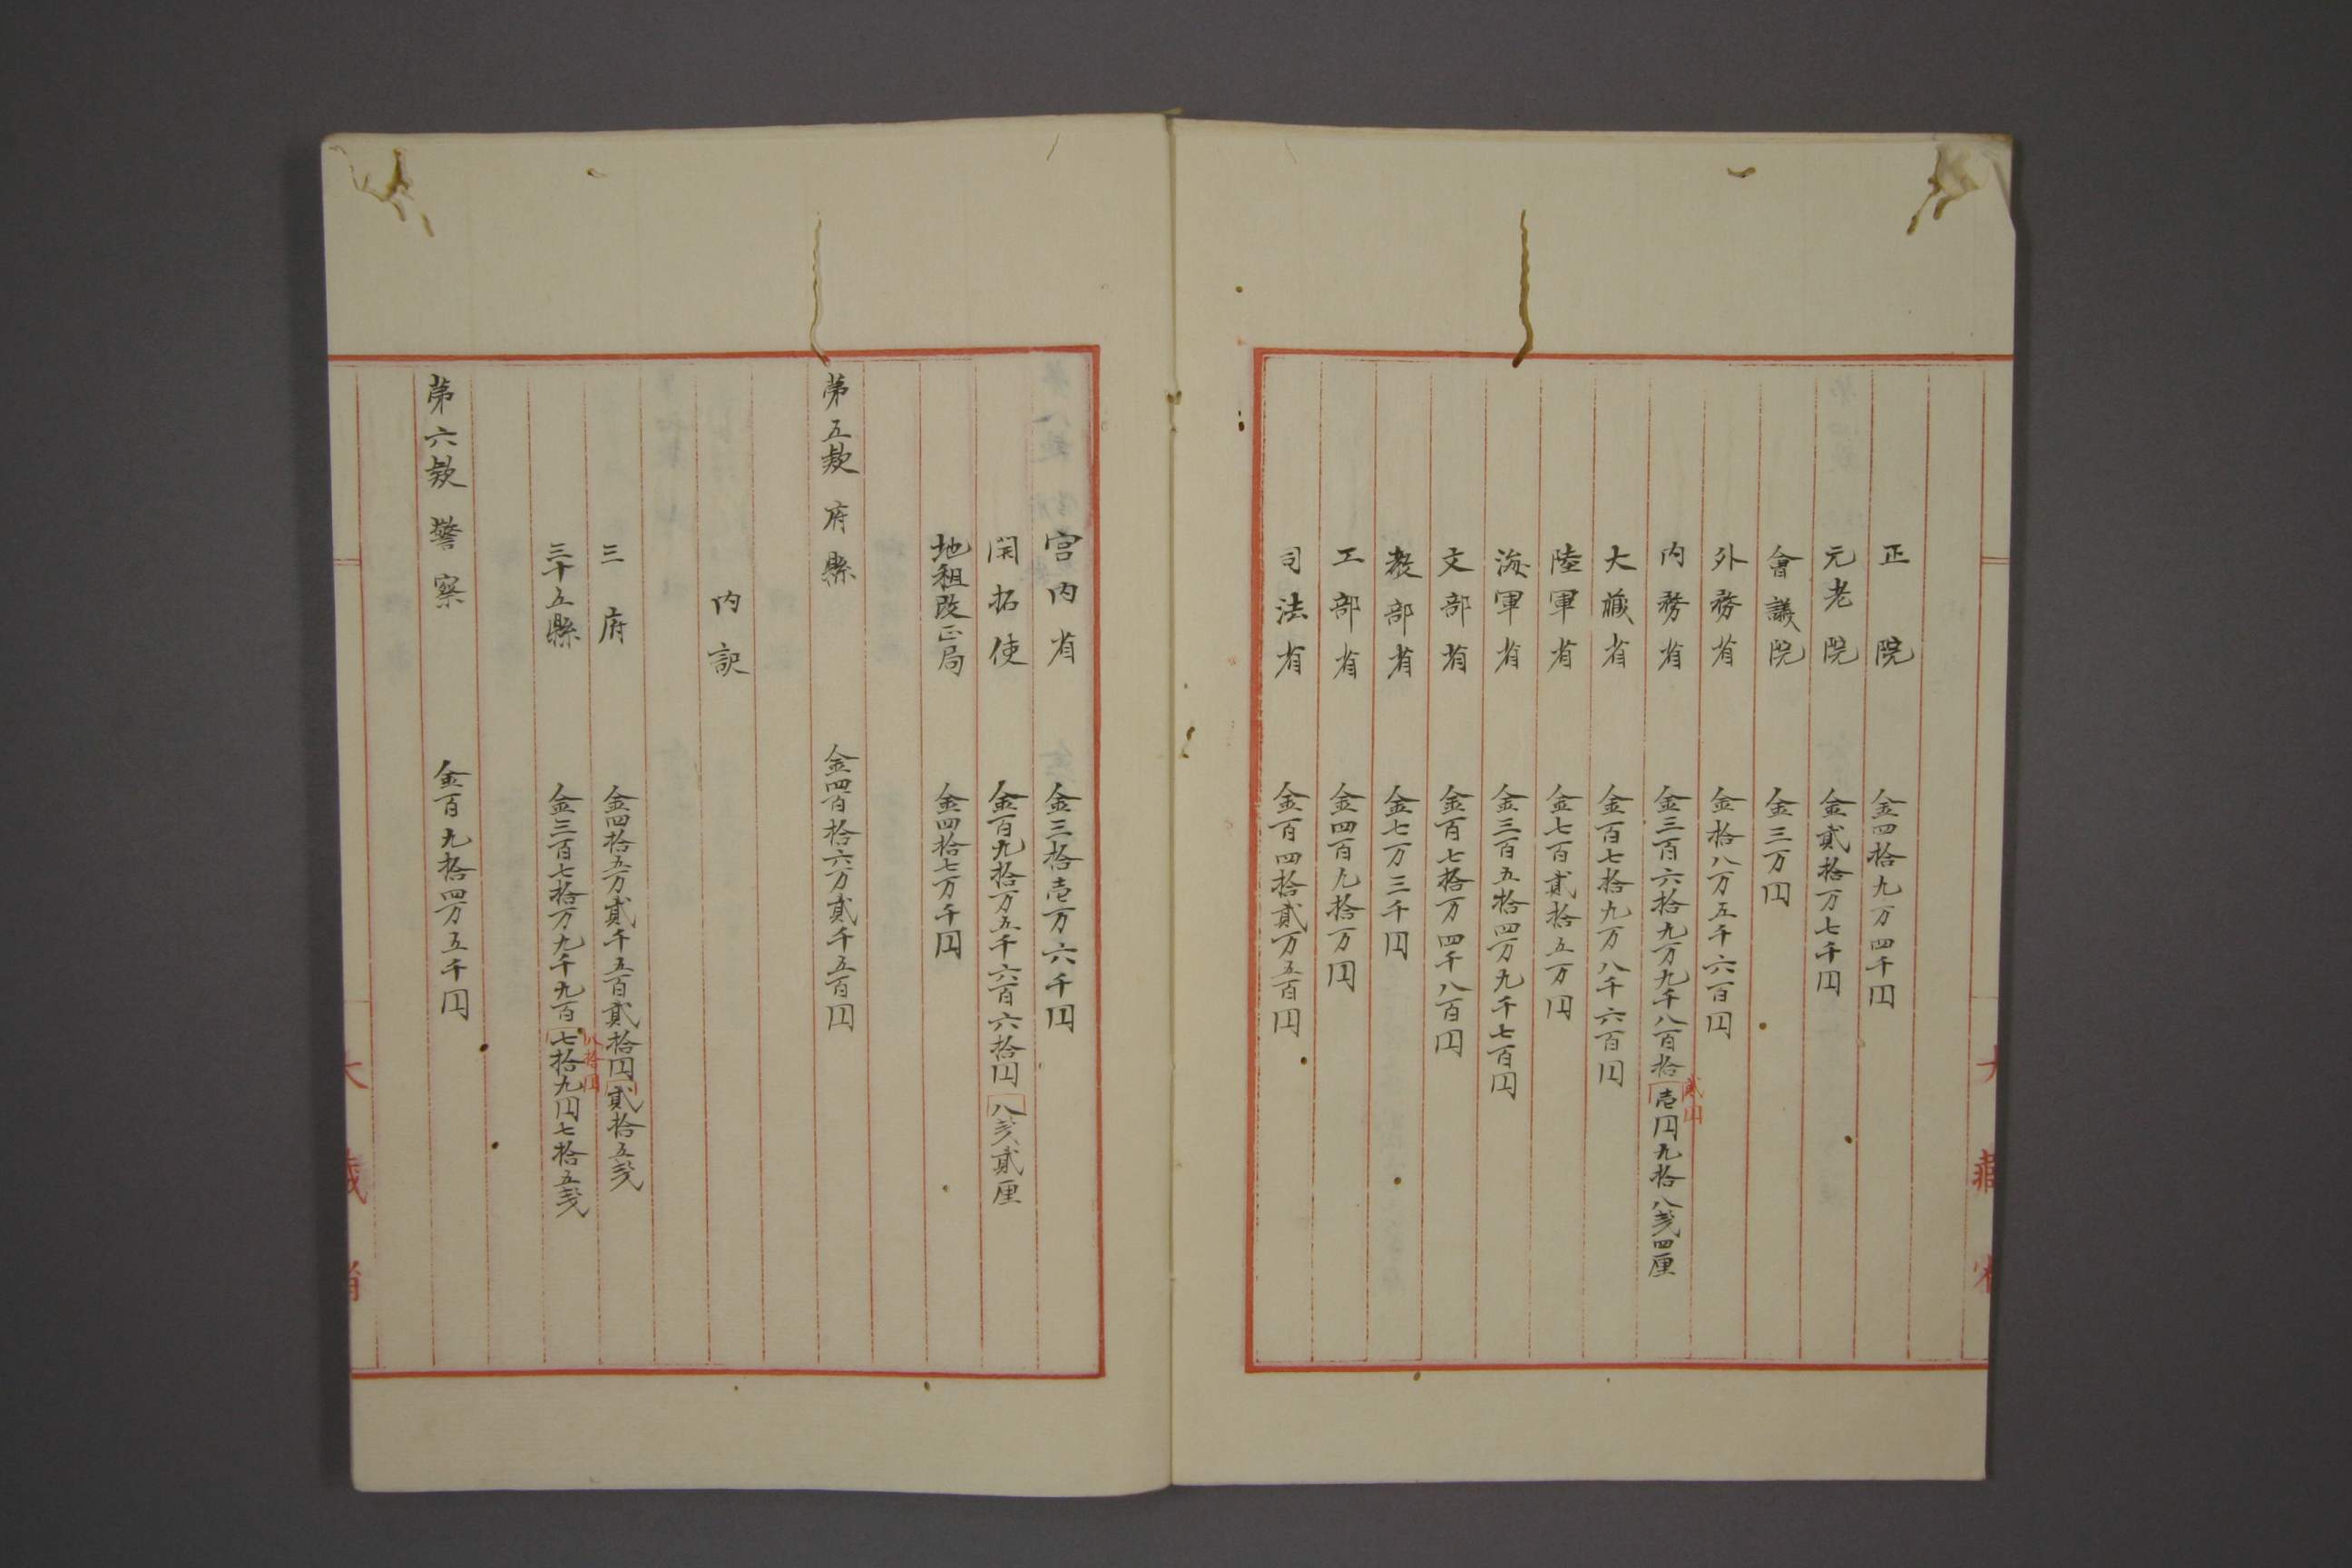 正院 金四拾九万四千円
元老院 金貳拾万七千円
會議院 金三万円
外務省 金拾八万五千六百円
内務省 金三百六拾九万九千八百拾壱円九拾八戔四厘
貳円
大藏省 金百七拾九万八千六百円
陸軍省 金七百貳拾五万円
海軍省 金三百五拾四万九千七百円
文部省 金百七拾万四千八百円
教部省 金七万三千円
工部省 金四百九拾万円
司法省 金百四拾貳万五百円
宮内省 金三拾壱万六千円
開拓使 金百九拾万五千六百六拾円八戔貳厘
地租改正局 金四拾七万千円
第五款 府縣 金四百拾六万貳千五百円
内訳
三府 金四拾五万貳千五百貳拾円貳拾五戔
三十五縣 金三百七拾万九千九百七拾九円七拾五戔
八拾円
第六款 警察 金百九拾四万五千円
大藏省